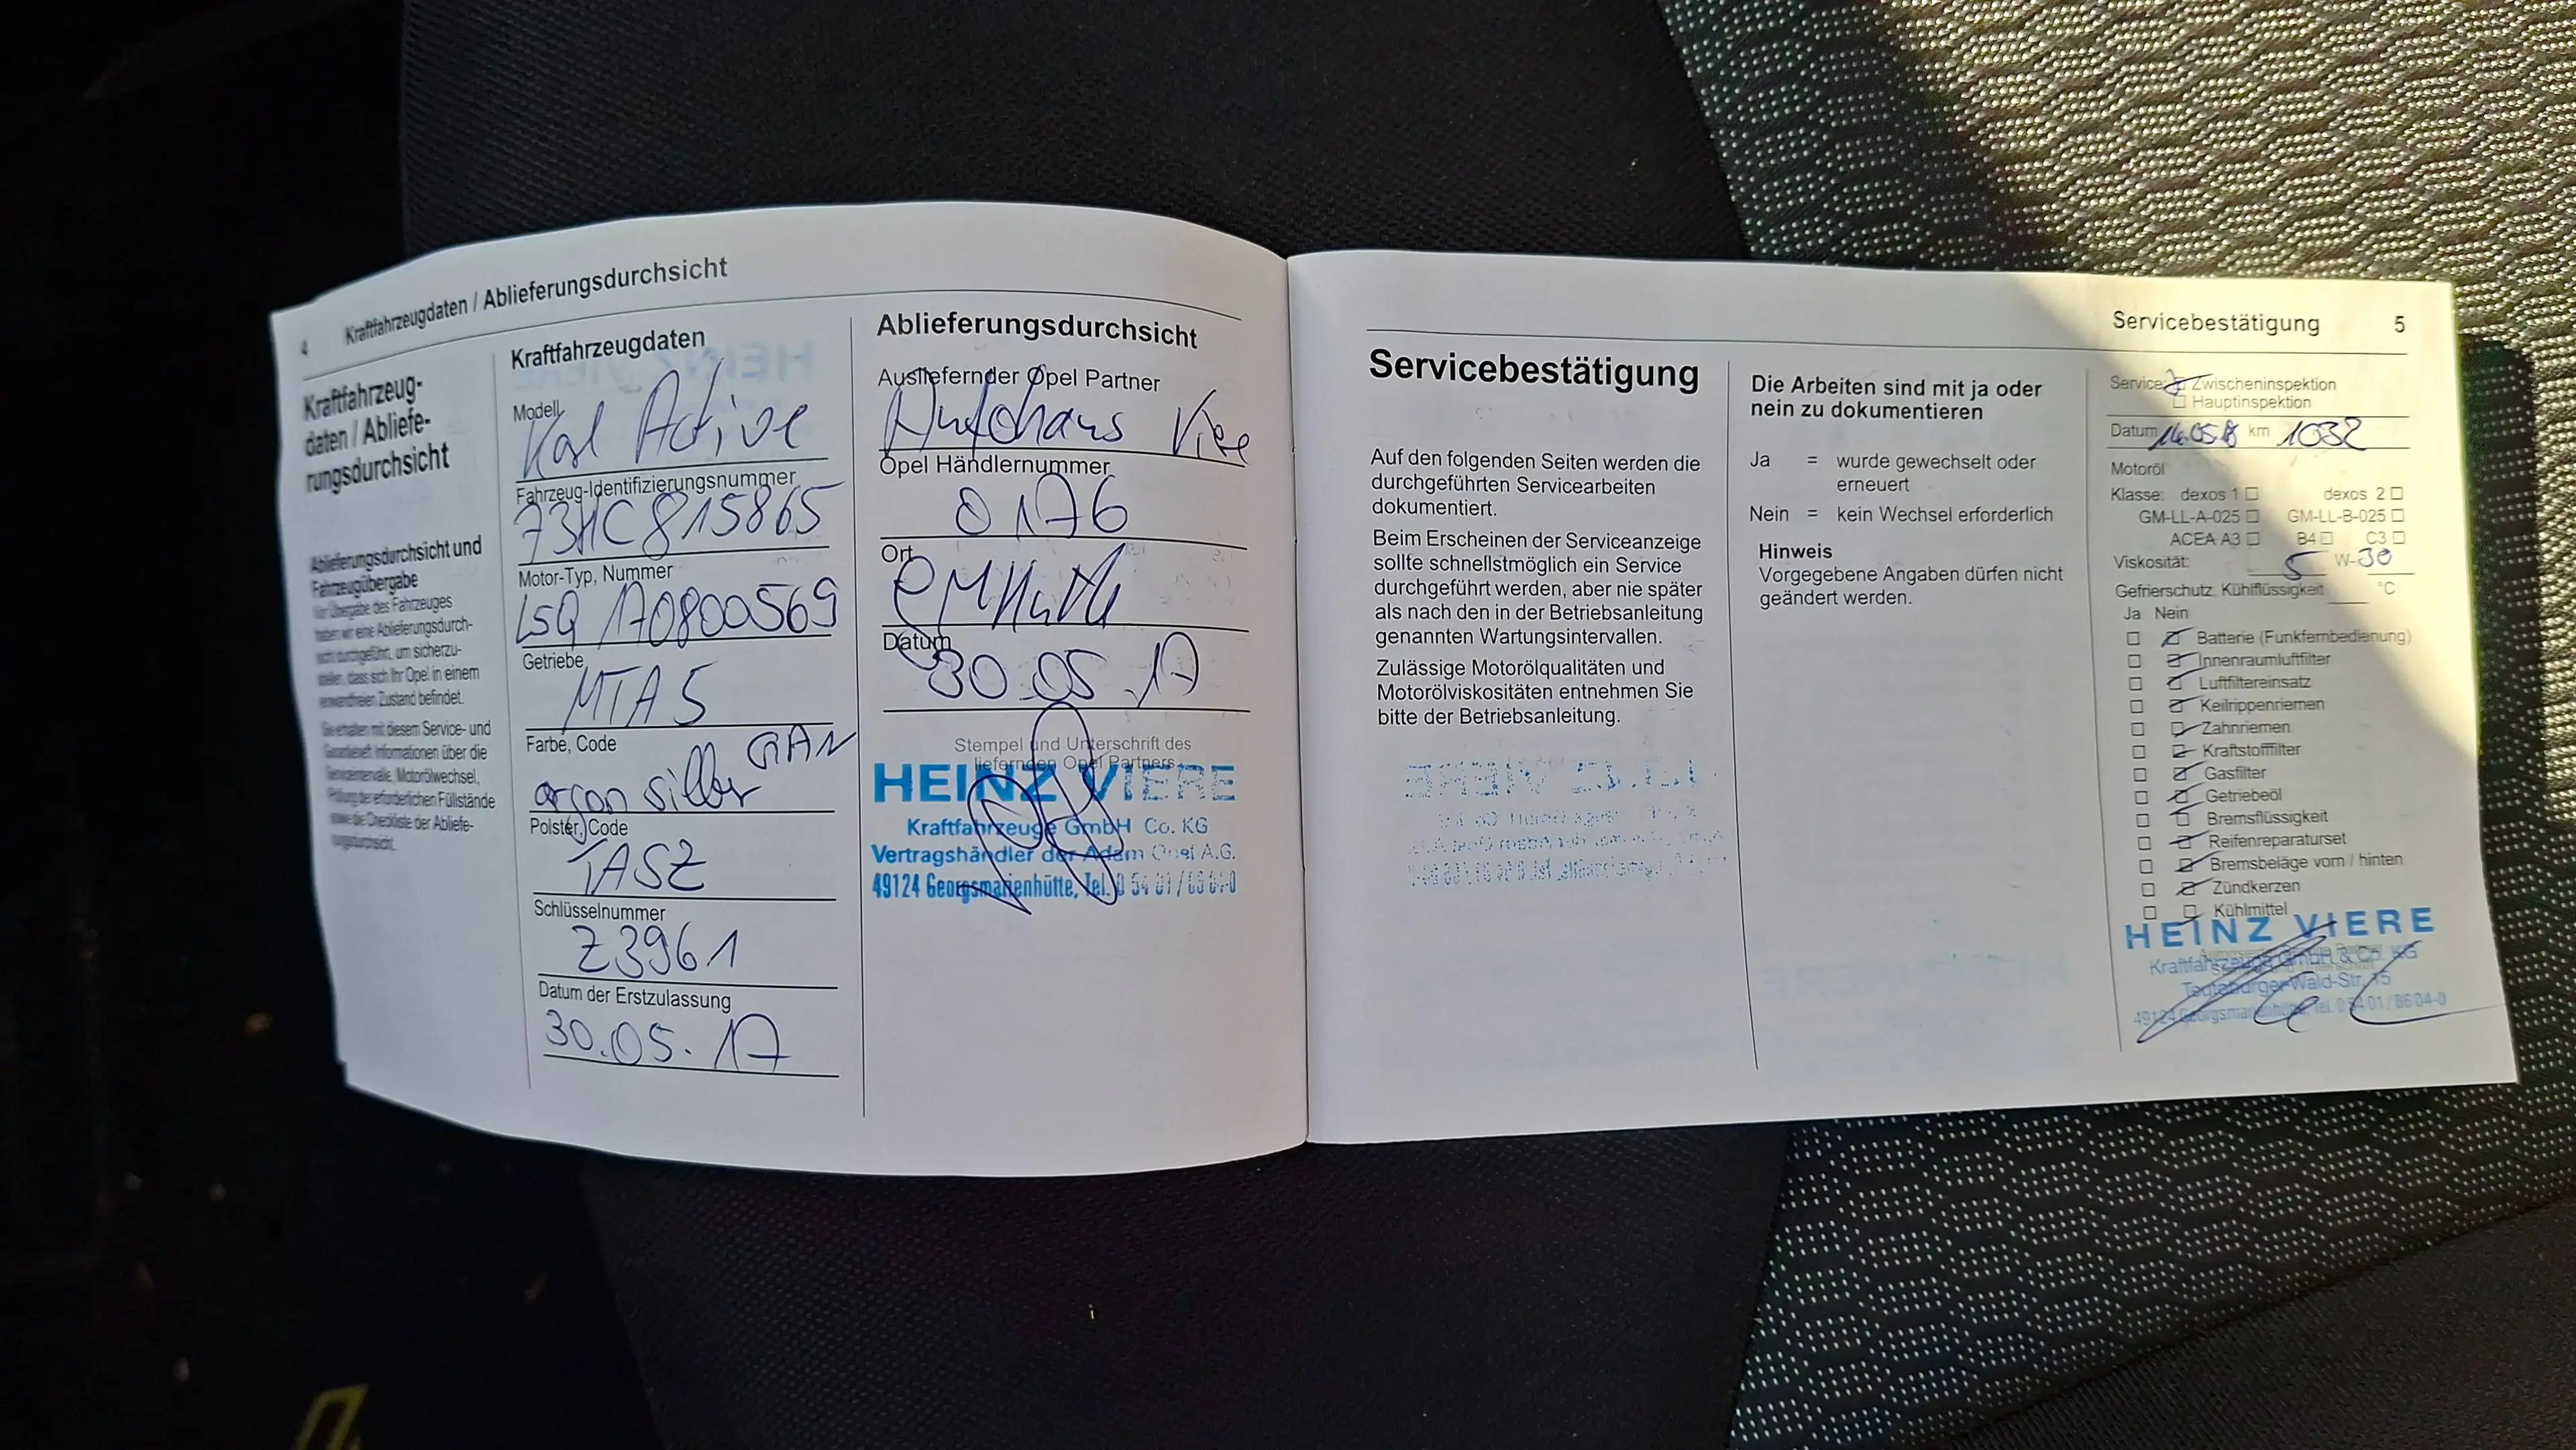 4 Kraftfahrzeugdaten / Ablieferungsdurchsicht
Kraftfahrzeug-
daten / Abliefe-
rungsdurchsicht
Ablieferungsdurchsicht und
Fahrzeugübergabe
Vor Übergabe des Fahrzeuges
haben wir eine Ablieferungsdurch-
sicht durchgeführt, um sicherzu-
stellen, dass sich Ihr Opel in einem
einwandfreien Zustand befindet.
Sie erhalten mit diesem Service- und
Garantieheft Informationen über die
Serviceintervalle, Motorölwechsel,
Prüfung der erforderlichen Füllstände
sowie die Checkliste der Abliefe-
rungsdurchsicht.
Kraftfahrzeugdaten
Modell
Karl Active
Fahrzeug-Identifizierungsnummer
73HC815865
Motor-Typ, Nummer
L5Q 170800569
Getriebe
MTA 5
Farbe, Code
argon silber GAN
Polster, Code
TASZ
Schlüsselnummer
Z3961
Datum der Erstzulassung
30.05.17
Ablieferungsdurchsicht
Ausliefernder Opel Partner
Autohaus Viere
Opel Händlernummer
0176
Ort
Datum
30.05.17
Stempel und Unterschrift des
liefernden Opel Partners
HEINZ VIERE
Kraftfahrzeuge GmbH Co. KG
Vertragshändler der Adam Opel A.G.
49124 Georgsmarienhütte, Tel. 0 54 01 /
Servicebestätigung 5
Servicebestätigung
Auf den folgenden Seiten werden die
durchgeführten Servicearbeiten
dokumentiert.
Beim Erscheinen der Serviceanzeige
sollte schnellstmöglich ein Service
durchgeführt werden, aber nie später
als nach den in der Betriebsanleitung
genannten Wartungsintervallen.
Zulässige Motorölqualitäten und
Motorölviskositäten entnehmen Sie
bitte der Betriebsanleitung.
Die Arbeiten sind mit ja oder
nein zu dokumentieren
Ja = wurde gewechselt oder
erneuert
Nein = kein Wechsel erforderlich
Hinweis
Vorgegebene Angaben dürfen nicht
geändert werden.
Service: Zwischeninspektion
Hauptinspektion
Datum 14.05.18 km 1032
Motoröl
Klasse: dexos 1 dexos 2
GM-LL-A-025 GM-LL-B-025
ACEA A3 B4 C3
Viskosität: 5 W-30
Gefrierschutz, Kühlflüssigkeit °C
Ja Nein
Batterie (Funkfernbedienung)
Innenraumluftfilter
Luftfiltereinsatz
Keilrippenriemen
Zahnriemen
Kraftstofffilter
Gasfilter
Getriebeöl
Bremsflüssigkeit
Reifenreparaturset
Bremsbeläge vorn / hinten
Zündkerzen
Kühlmittel
HEINZ VIERE
Kraftfahrzeuge GmbH & Co. KG
Teutoburger-Wald-Str. 15
49124 Georgsmarienhütte, Tel. 0 54 01 / 86 04-0